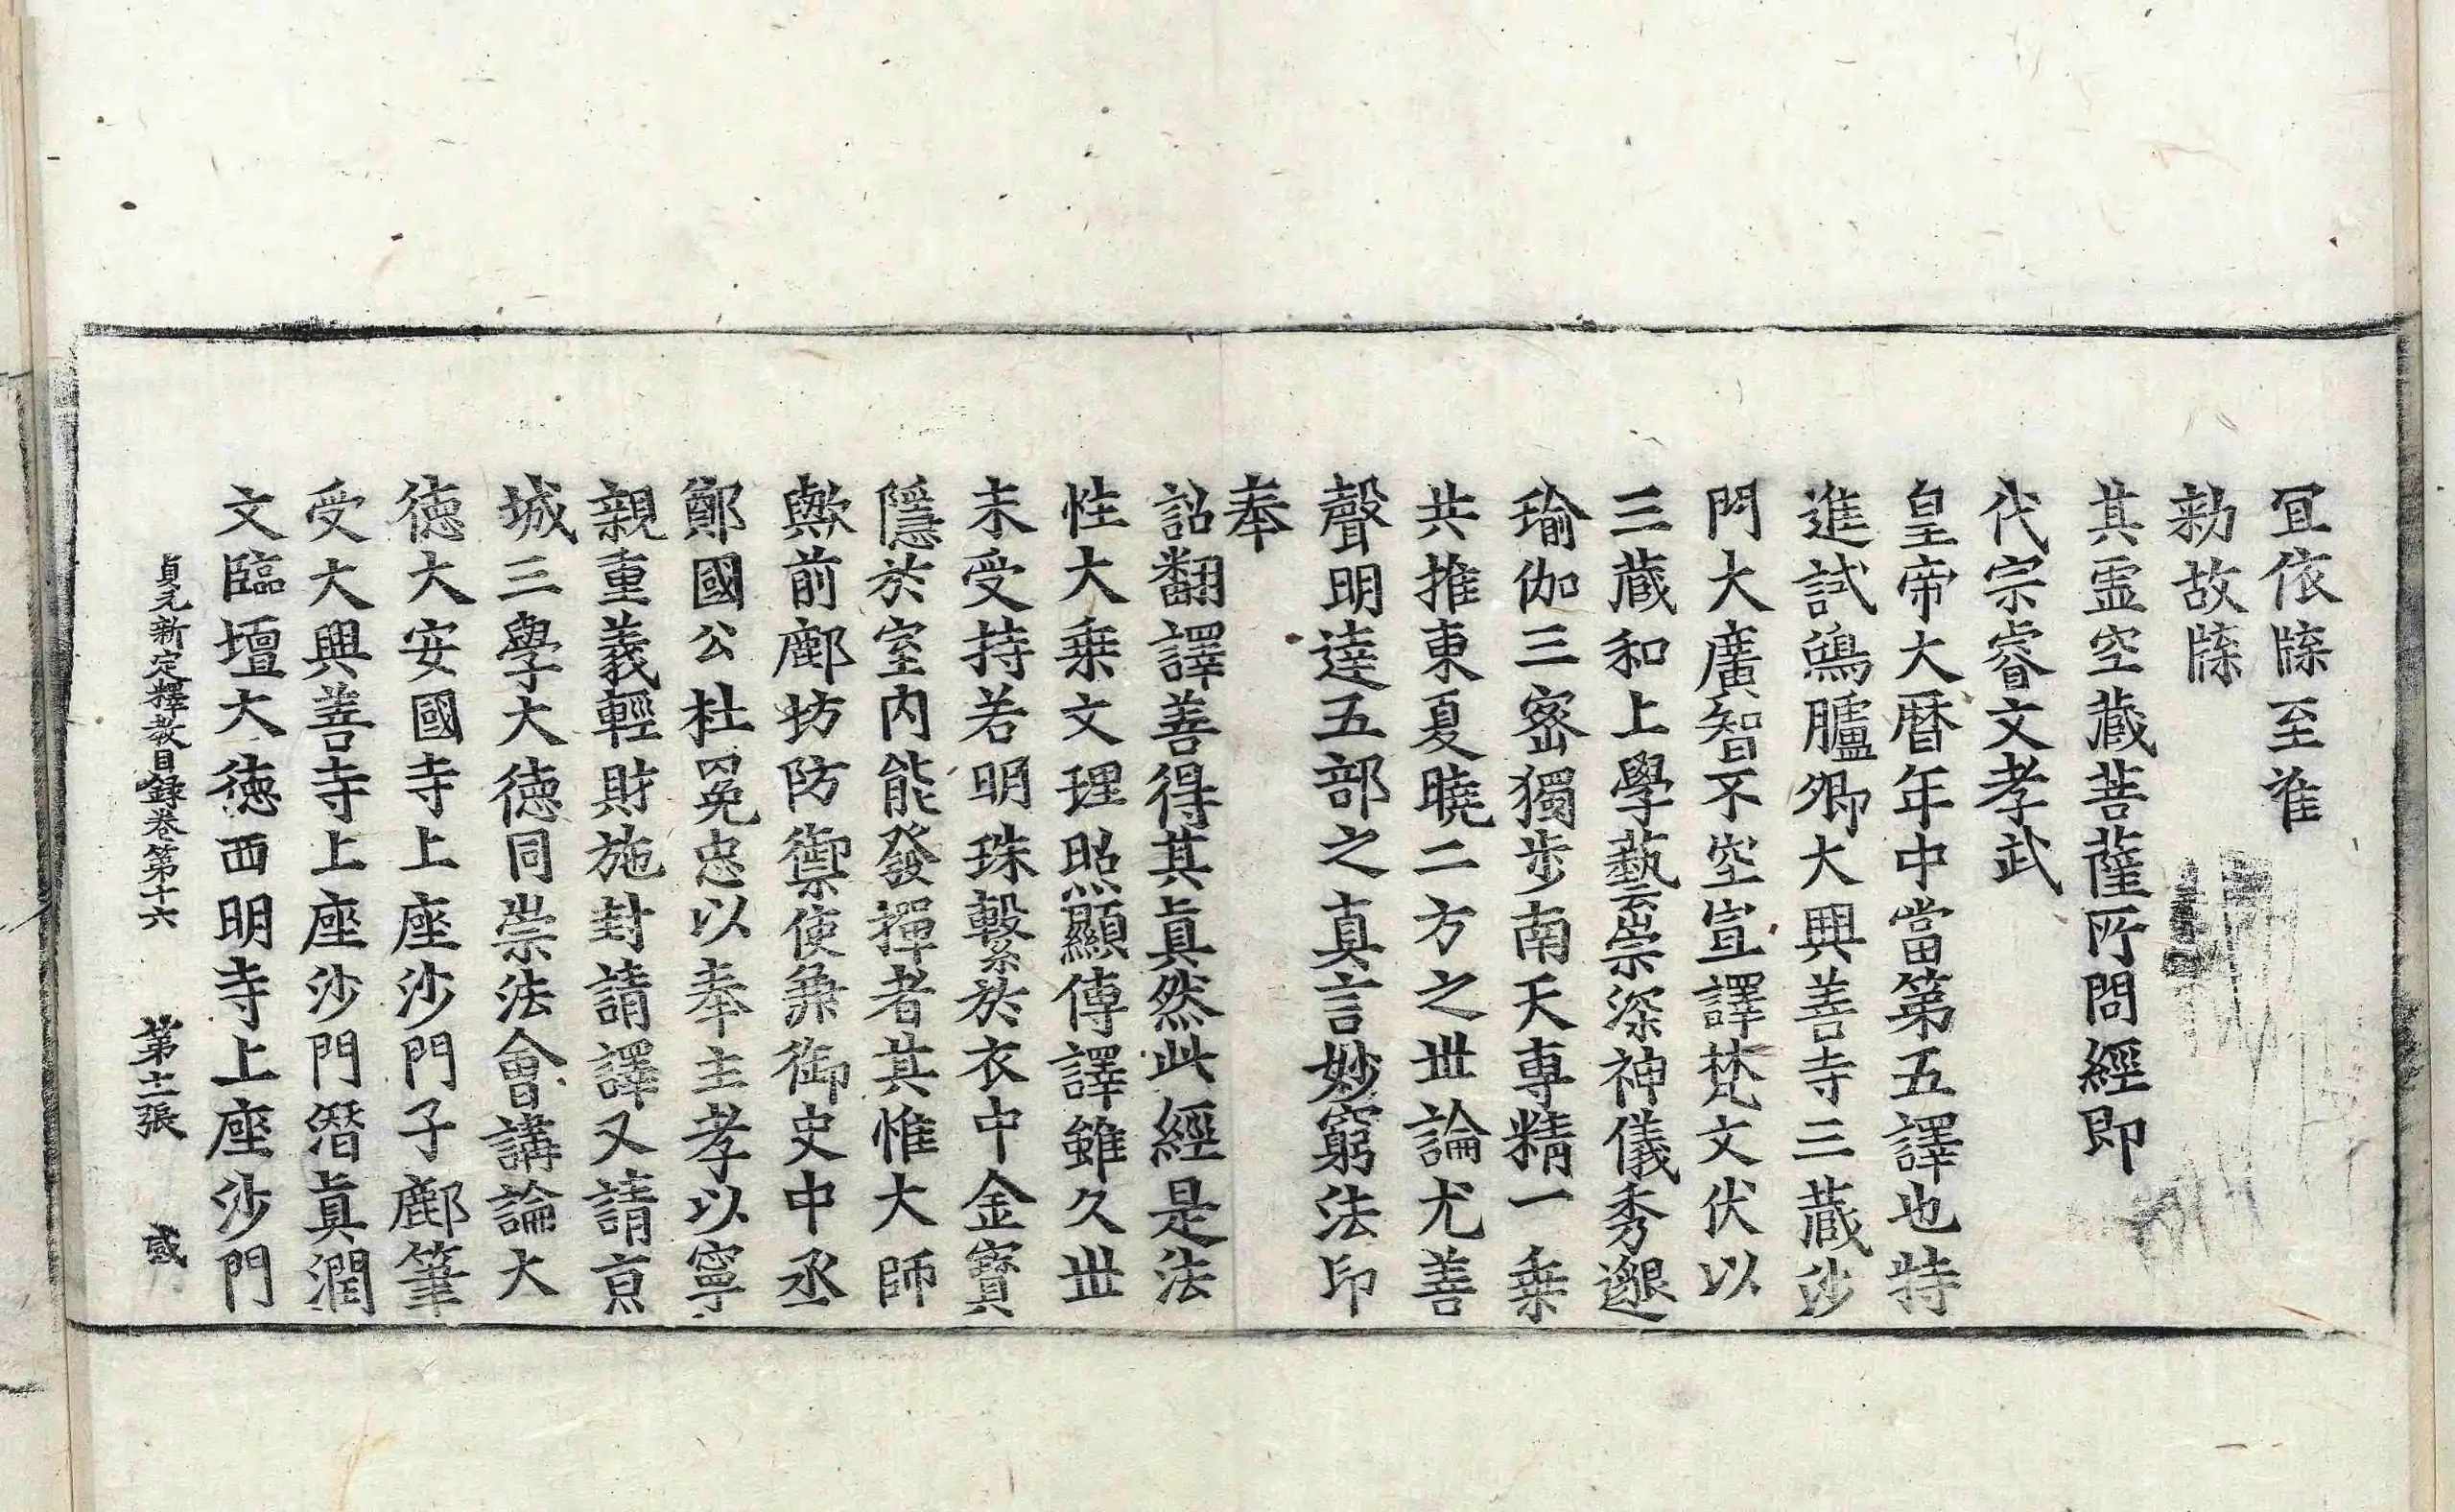 冝依牒至准
勑故牒
其虛空藏菩薩所問經即
代宗睿文孝武
皇帝大曆年中當第五譯也特
進試鴻臚卿大興善寺三藏沙
門大廣智不空宣譯梵文伏以
三藏和上學藝云崇深神儀秀邈
瑜伽三密獨步南天專精一乘
共推東夏曉二方之世論尤善
聲明達五部之真言妙窮法印
奉
詔翻譯善得其眞然此經是法
性大乘文理昭顯傳譯雖久世
未受持若明珠繫於衣中金寶
隱於室內能發揮者其惟大師
歟前鄜坊防禦使兼御史中丞
鄭國公杜冕忠以奉主孝以寧
親重義輕財施封請譯又請京
城三學大德同崇法會講論大
德大安國寺上座沙門子鄜筆
受大興善寺上座沙門潛眞潤
文臨壇大德西明寺上座沙門
貞元新定釋教目録卷第十六 第十二張 或